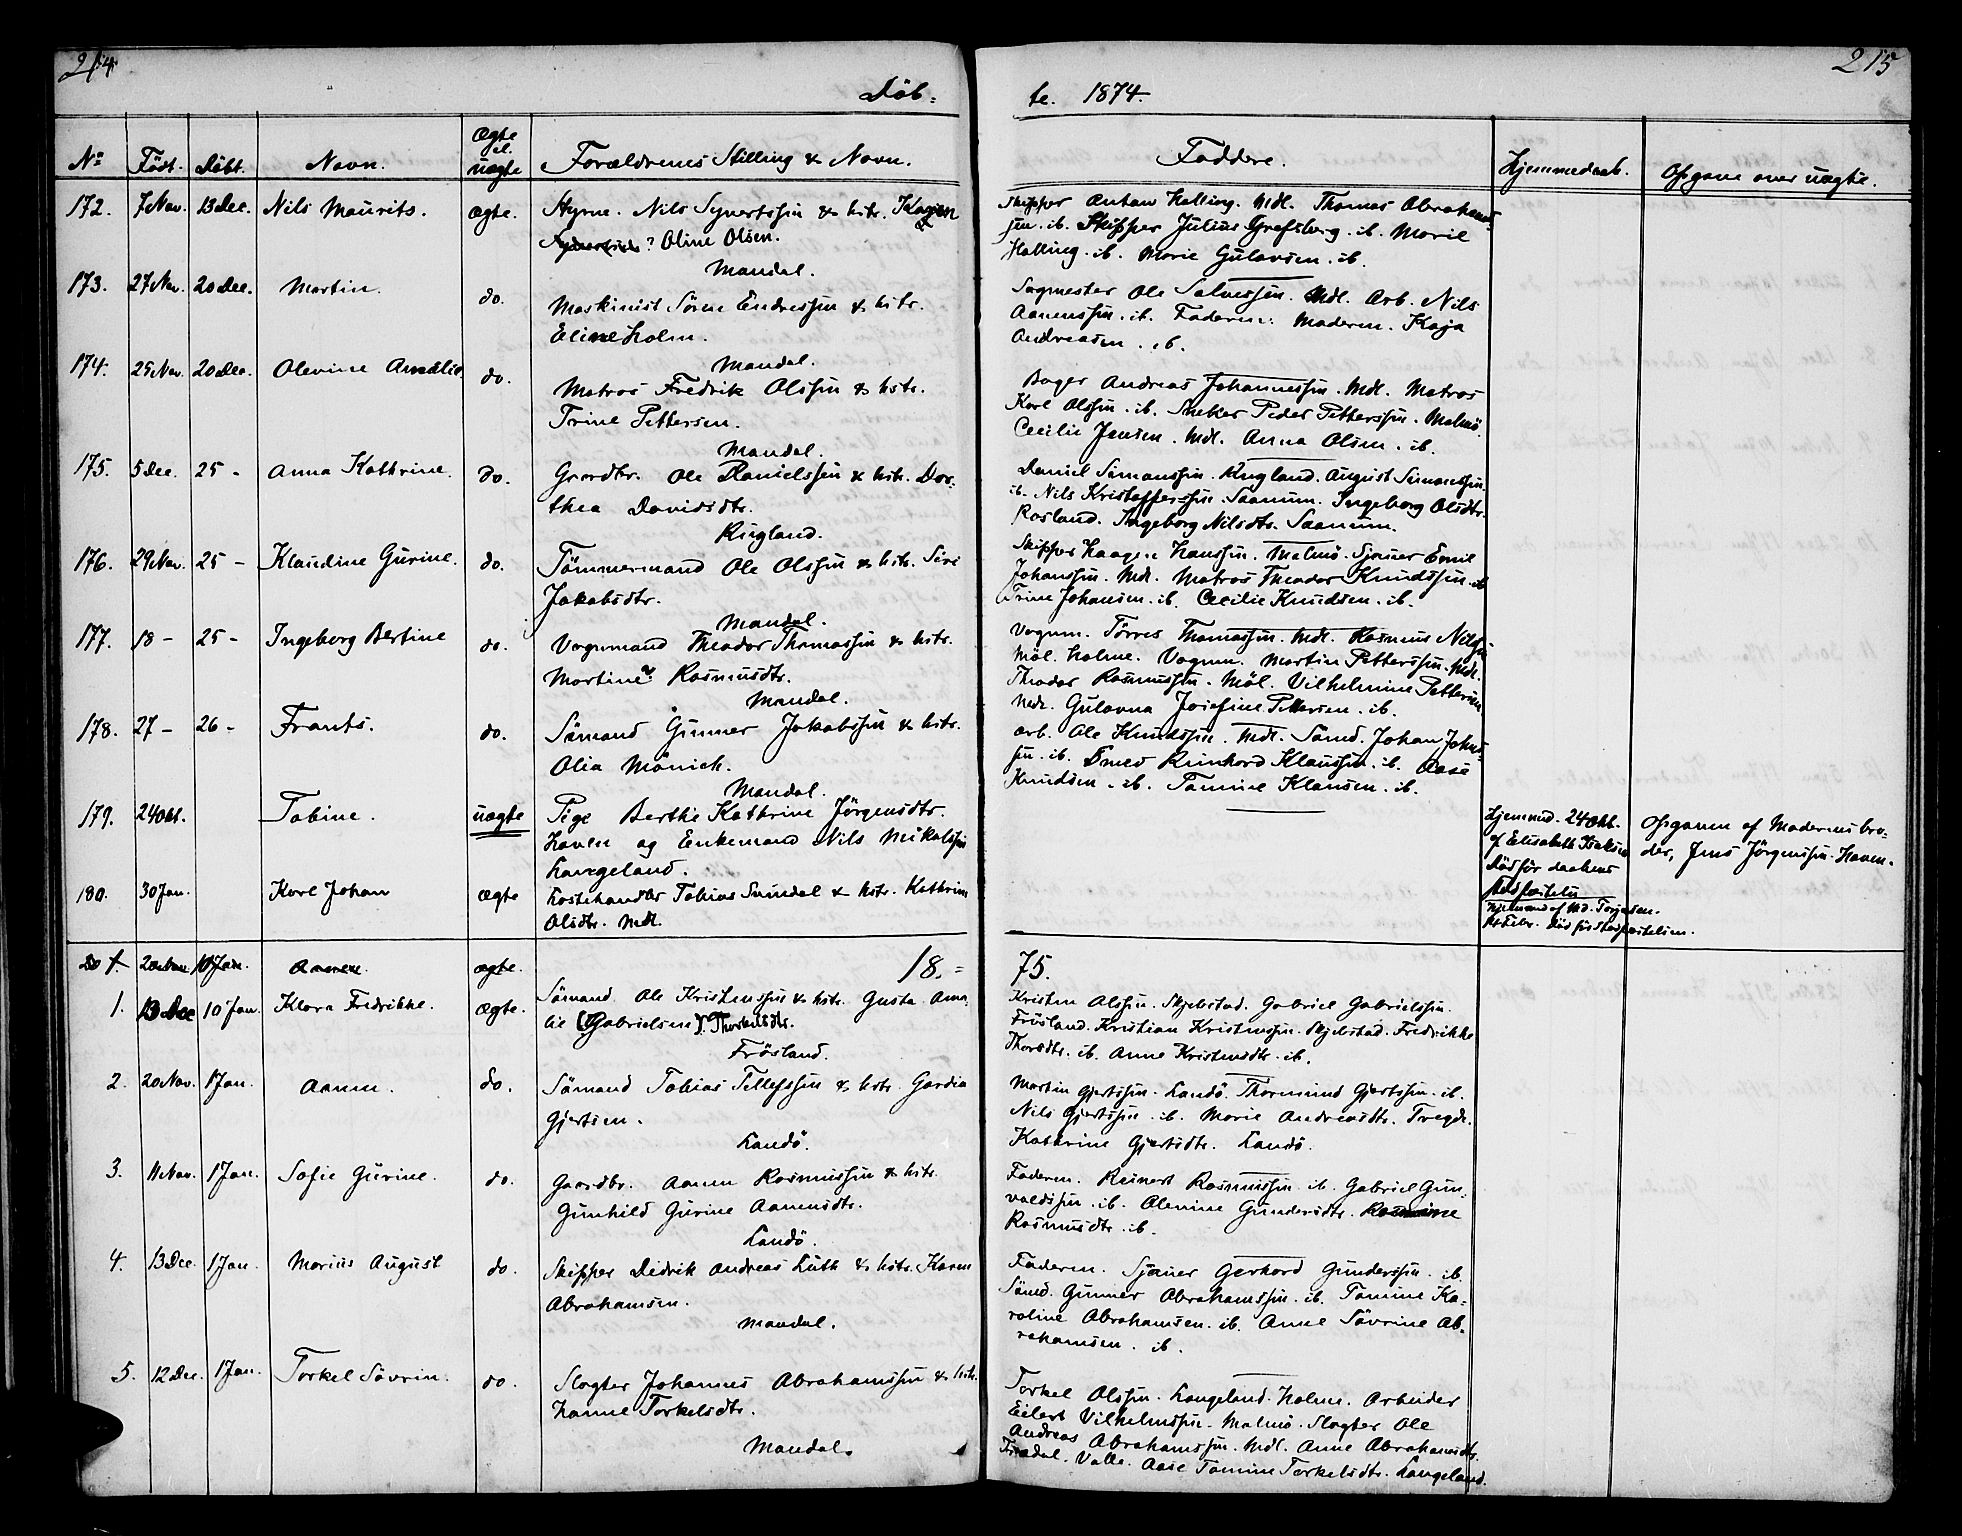 214
215
Döb-
te. 1874.
No
Født.
Döbt.
Navn.
Ægte el. uægte
Forældrenes Stilling & Navn.
Faddere.
Hjemmedaab.
Opgave over uægte.
172. 7 Nov. 13 Dec. Nils Maurits. ægte. Styrm. Nils Syvertssen & hstr. Karen
? Oline Olsen.
Mandal.
Skipper Anton Halling. Mdl. Thomas Abrahams-
sen. ib. Skipper Julius Grefsberg. ib. Marie
Halling. ib. Marie Gulovsen. ib.
173. 27 Nov. 20 Dec. Martin. do.
Maskinist Sören Endressen & hstr.
Eline Holm.
Mandal.
Sagmester Ole Salvessen. Mdl. Arb. Nils
Aanenssen. ib. Faderen. Moderen. Kaja
Andreasen. ib.
174. 25 Nov. 20 Dec. Olevine Amalia do.
Matros Fredrik Olssen & hstr.
Trine Pettersen.
Mandal.
Bager Andreas Johannessen. Mdl. Matros
Karl Olssen. ib. Sneker Peder Petterssen. Malmö.
Cecilie Jensen. Mdl. Anna Olsen. ib.
175. 5 Dec. 25 - Anna Kathrine. do. Gaardbr. Ole Danielssen & hstr. Dor-
thea Davidsdtr.
Rugland.
Daniel Simonssen. Rugland. August Simonssen
ib. Nils Kristofferssen. Saanum. Ingeborg Olsdtr.
Rosland. Ingeborg Nilsdtr. Saanum.
176. 29 Nov. 25 - Klaudine Gurine. do. Tömmermand Ole Olssen & hstr. Siri
Jakobsdtr.
Mandal.
Skipper Haagen Hanssen. Malmö. Sjauer Emil
Johanssen. Mdl. Matros Theodor Knudssen. ib
Trine Johansen. ib. Cecilie Knudsen. ib.
177. 18 - 25 - Ingeborg Bertine do. Vognmand Theodor Thomassen & hstr.
Martine Rasmusdtr.
Mandal.
Vognm. Törres Thomassen. Mdl. Rasmus Nilssen
Möl. Holme. Vognm. Martin Petterssen. Mdl.
Theodor Rasmussen. Möl. Vilhelmine Pettersen
Mdl. Gulovna Josefine Pettersen. ib.
178. 27 - 26 - Frants. do. Sömand Gunner Jakobssen & hstr.
Olia Mönich.
Mandal.
Arb. Ole Knudssen. Mdl. Sömd. Johan Johns-
sen. ib. Smed Reinhard Klaussen. ib. Aase
Knudsen. ib. Tomine Klausen. ib.
179. 24 Okt. Tobine. uægte Pige Berthe Kathrine Jörgensdtr.
Haven og Enkemand Nils Mikalssen
Langeland.
Hjemmed. 24 Okt.
af Elisabeth Isaksen
Död før daabens
Stadfæstelse
Opgaven af Moderens bro-
der, Jens Jörgenssen. Haven.
180. 30 Jan. Karl Johan ægte Tobias Sundal & hstr. Kathrine
Olsdtr. Mdl.
Hjemmed af Md. Torjesen.
Död før Stadfæstelsen.
1. 20 Nov. 10 Jan. Aanen. ægte.
18. = 75.
1. 13 Dec 10 Jan. Klara Fredrikke. ægte. Sömand Ole Kristenssen & hstr. Gusta Ama-
lie (Gabrielsen). Thorkelsdtr.
Frösland.
Kristen Olssen. Skjebstad. Gabriel Gabrielssen.
Frösland. Kristian Kristenssen. Skjebstad. Fredrikke
Thorsdtr. ib. Anne Kristensdtr. ib.
2. 20 Nov. 1 Jan. Aanen. do. Sömand Tobias Tellefssen & hstr. Gardia
Gjertsen.
Landö.
Martin Gjertssen. Landö. Thormund Gjertssen. ib.
Nils Gjertssen. ib. Marie Andreasdtr. Tregde.
Kathrine Gjertsdtr. Landö.
3. 11 Nov. 1 Jan. Sofie Gurine. do. Gaardbr. Aanen Rasmussen & hstr.
Gunhild Gurine Aanensdtr.
Landö.
Faderen. Reinert Rasmussen. ib. Gabriel Gun-
valdssen. ib. Olenine Gundersdtr.
Rasmusdtr. ib.
4. 13 Dec. 1 Jan. Marius August do. Skipper Didrik Andreas Luth & hstr. Karen
Abrahamsen.
Mandal.
Faderen. Sjauer Gerhard Gunderssen. ib.
Sömd. Gunner Abrahamssen. ib. Tomine Ka-
roline Abrahamsen. ib. Anne Sövrine Ab-
rahamsen. ib.
5. 12 Dec. 1 Jan. Torkel Sövrin. do. Slagter Johannes Abrahamssen & hstr.
Hanne Torkelsdtr.
Mandal.
Torkel Olssen. Langeland. Holme. Arbeider
Eilert Vilhelmssen. Malmö. Slagter Ole
Andreas Abrahamssen. Mdl. Anne Abrahamsdtr.
Valle. Aase Tomine Torkelsdtr. Langeland.